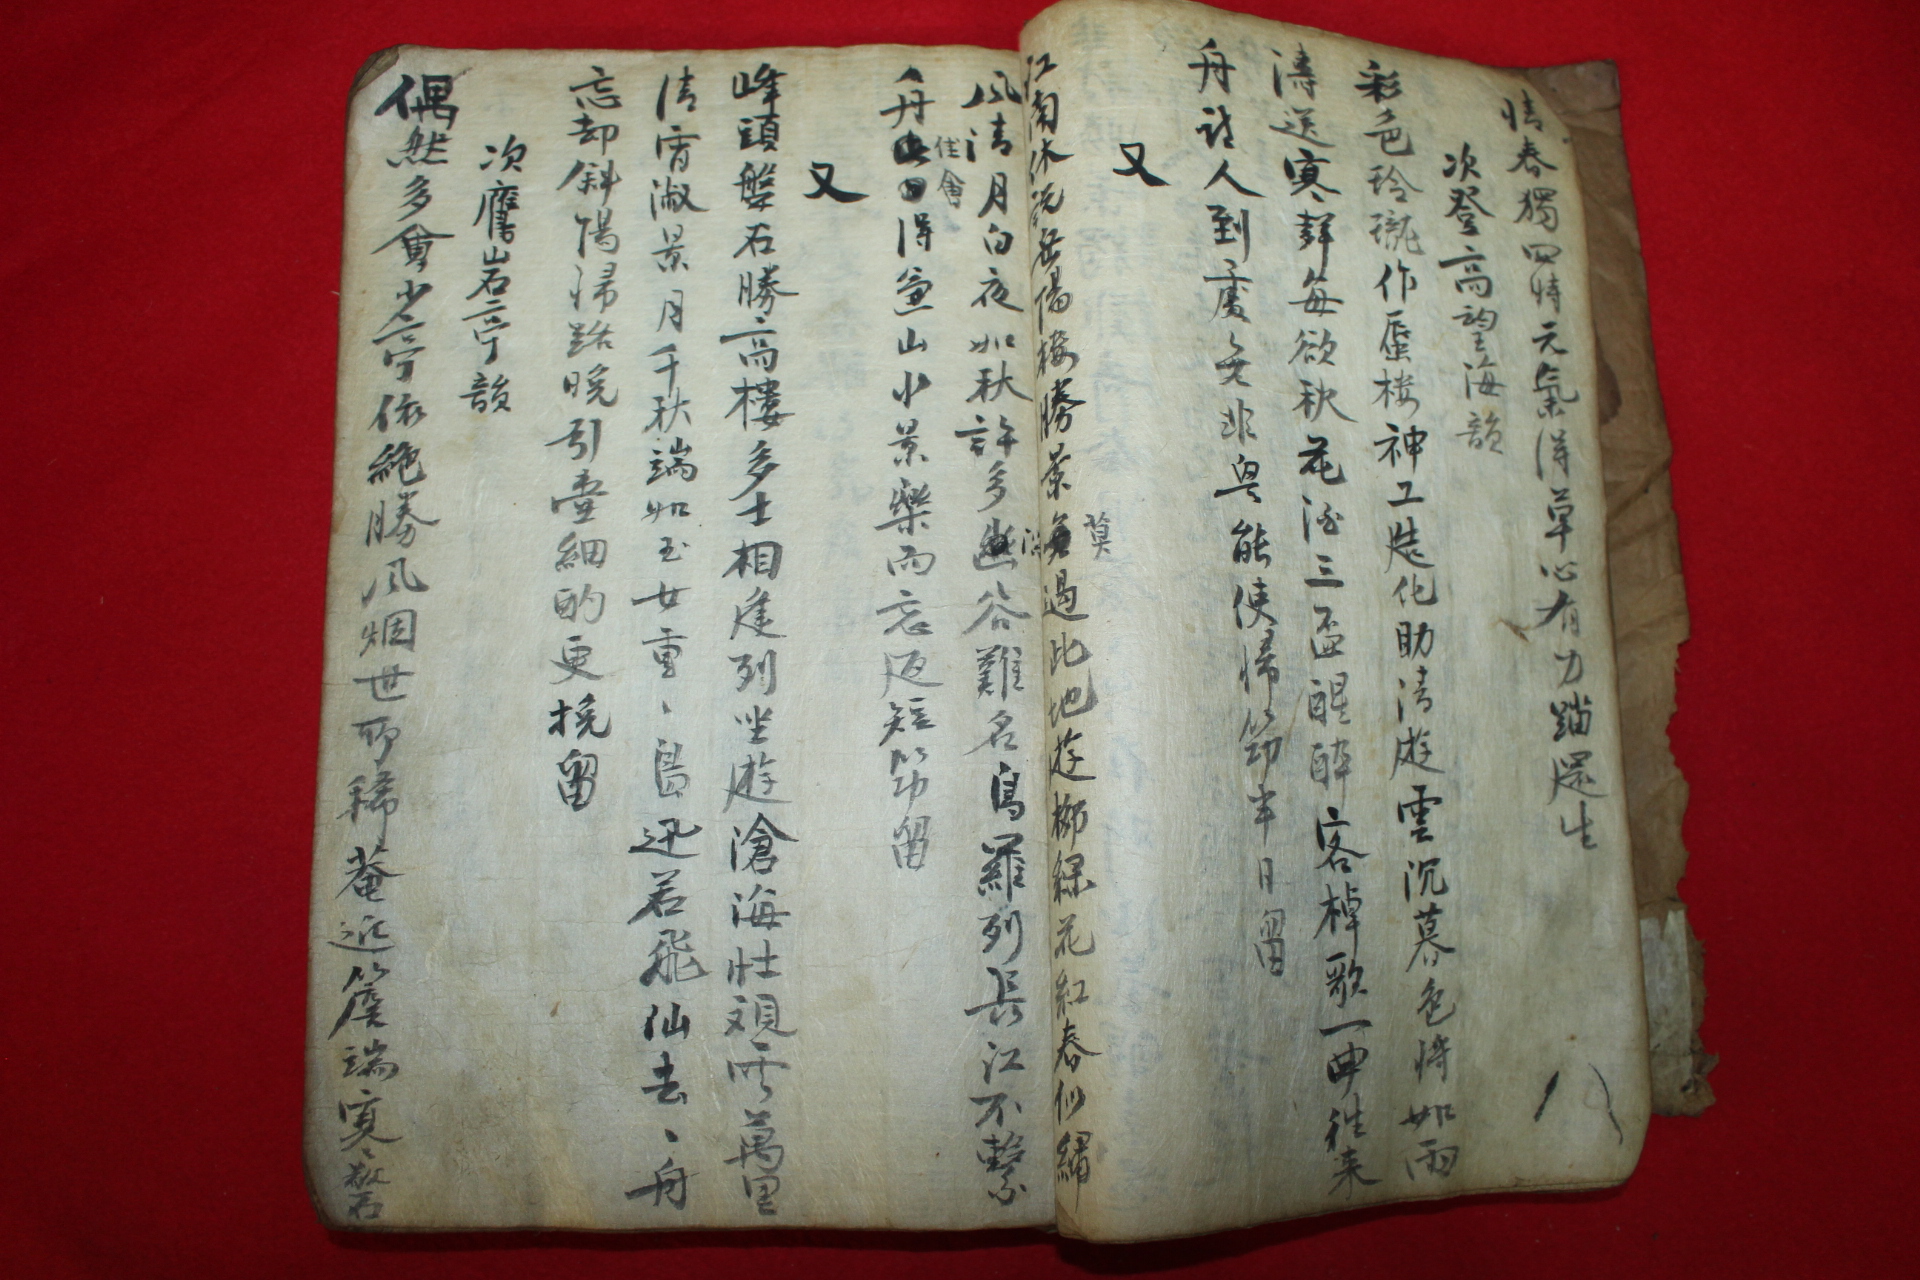 春獨四時元氣得草心有力踏還生
次登高望海韻
彩色玲瓏作蜃樓神工戲化助清遊雲沉暮色將如雨
濤送寒聲每欲秋花酒三盃醒醉客棹歌一曲往來
舟詩人到處無非興能使歸筇半日留
又
江南休說岳陽樓勝景莫過此地遊柳綠花紅春似繡
風清月白夜如秋許多幽谷難名鳥羅列長江不繫
舟 住會 得兼山水景樂而忘返短筇留
又
峰頭盤石勝高樓多士相逢列坐遊滄海壯觀雲萬里
清宵淑景月千秋端如玉女重、島迅若飛仙去、舟
忘却斜陽歸路晚引壺細酌更挽留
次鷹岩亭韻
偶然多會少亭依絶勝風烟世所稀菴近 端寒磬